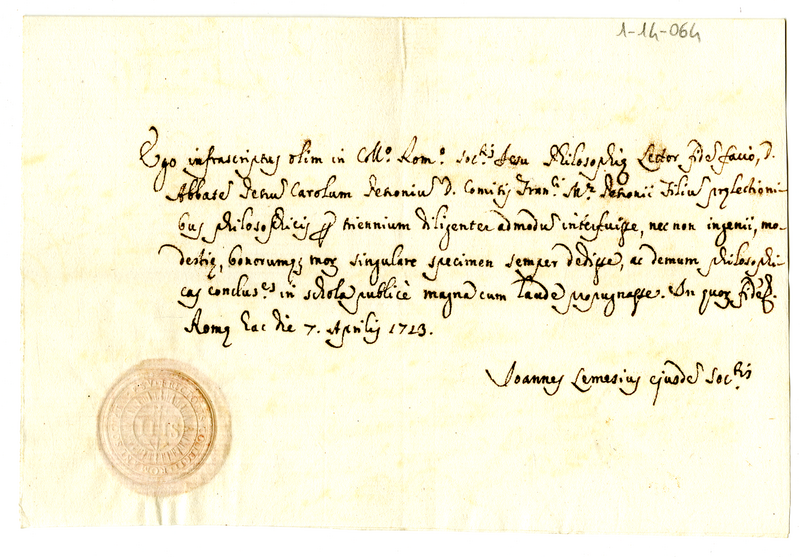 1-14-064
Ego infrascriptus olim in Coll.º Rom.º Soc.tis Jesu Philosophię Lector fidē facio, D.
Abbatē Petrū Carolum Petroniū D. Comitis Fran.ci M.æ Petronii Filiū prælectioni-
bus philosophicis p triennium diligenter admodū interfuisse, nec non ingenii, mo-
destię, bonorumq; mor. singulare specimen semper dedisse, ac demum philosophi-
cas conclus.es in schola publicè magna cum laude propugnasse. In quor. fidē &.
Romę hac die 7. Aprilis 1723.
Joannes Lemesius ejusdē Soc.tis
IHS